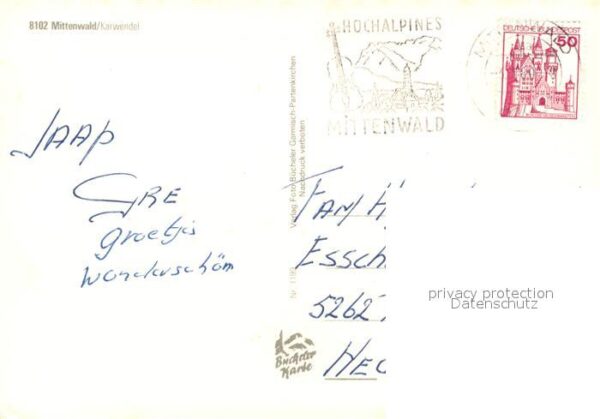 8102 Mittenwald/Karwendel
HOCHALPINES
MITTENWALD
DEUTSCHE BUNDESPOST
50
JAAP
GRE
groetjis
wonderschöm
Verlag Foto Bücheler Garmisch-Partenkirchen
Nachdruck verboten
Nr.
Fam H
Essch
5262
HEU
privacy protection
Datenschutz
Bücheler
Karte